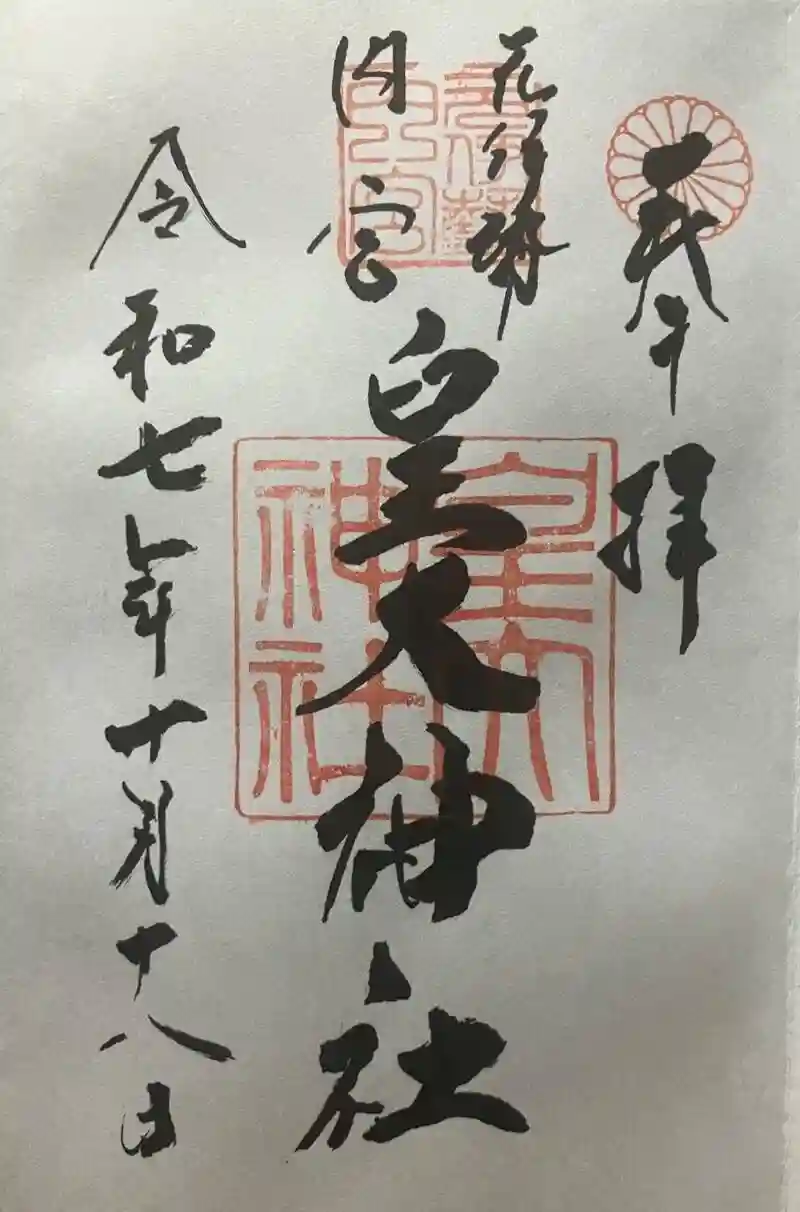 奉拝
元伊勢
内宮
皇大神社
令和七年十月十八日
元伊勢
内宮
皇大
神社